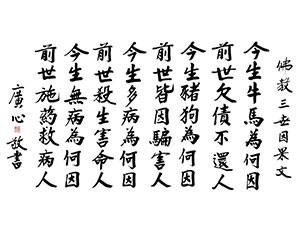 佛教三世因果文
今生牛馬為何因
前世欠債不還人
今生豬狗為何因
前世皆因騙害人
今生多病為何因
前世殺生害命人
今生無病為何因
前世施藥救病人
廣心敬書